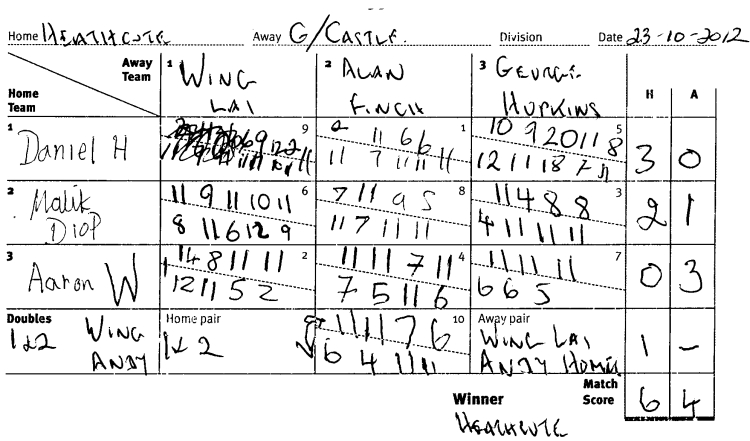 Home HEATHCOTE Away G/CASTLE. Division Date 23-10-2012
Away Team 1 WING LAI 2 ALAN FINCH 3 GEORGE HOPKINS H A
Home Team
1 Daniel H 9 1 5 3 0
2 11 6 6
10 9 20 11 8
11 7 11 11 11
12 11 18 7 11
2 Malik DIOP 6 8 3 2 1
11 9 11 10 11
7 11 9 5
11 4 8 8
8 11 6 12 9
11 7 11 11
4 11 11 11
3 Aaron W 2 4 7 0 3
14 8 11 11
11 11 7 11
11 11 11
12 11 5 2
7 5 11 6
6 6 5
Doubles Home pair 10 Away pair
1&2 WING ANDY 1&2 11 11 7 6 WING LAI 1 -
6 4 11 11 ANDY
Winner Match Score 6 4
HEATHCOTE